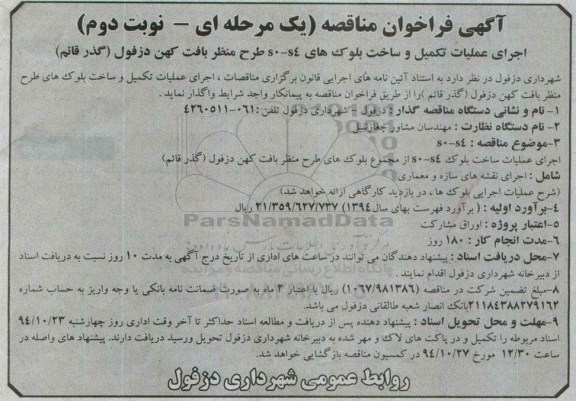 آگهی فراخوان مناقصه (یک مرحله ای – نوبت دوم)
اجرای عملیات تکمیل و ساخت بلوک های s۰-s۴ طرح منظر بافت کهن دزفول (گذر قائم)
شهرداری دزفول در نظر دارد به استناد آئین نامه های اجرایی قانون برگزاری مناقصات ، اجرای عملیات تکمیل و ساخت بلوک های طرح
منظر بافت کهن دزفول (گذر قائم )را از طریق فراخوان مناقصه به پیمانکار واجد شرایط واگذار نماید .
۱- نام و نشانی دستگاه مناقصه گذار : دزفول – شهرداری دزفول تلفن :۰۶۱-۴۲۶۰۵۱۱
۲- نام دستگاه نظارت : مهندسان مشاور جغازنبیل
۳-موضوع مناقصه : s۰-s۴
اجرای عملیات ساخت بلوک s۰-s۴ از مجموع بلوک های طرح منظر بافت کهن دزفول (گذر قائم)
شامل : اجرای نقشه های سازه و معماری
(شرح عملیات اجرایی بلوک ها ، در بازدید کارگاهی ارائه خواهد شد)
۴-برآورد اولیه : ( برآورد فهرست بهای سال۱۳۹۴) ۲۱/۳۵۹/۶۲۷/۷۳۷ ریال
ParsNamadData
۵-اعتبار پروژه : اوراق مشارکت
۶-مدت انجام کار : ۱۸۰ روز
۷-محل دریافت اسناد : پیشنهاد دهندگان می توانند در ساعت های اداری از تاریخ درج آگهی به مدت ۱۰ روز نسبت به دریافت اسناد
از دبیرخانه شهرداری دزفول اقدام نمایند .
۸-مبلغ تضمین شرکت در مناقصه (۱۰۶۷/۹۸۱۳۸۶) ریال با اعتبار ۳ ماه به صورت ضمانت نامه بانکی یا وجه واریز به حساب شماره
۲۱۱۸۴۳۸۸۲۷۹۱۶۲بانک انصار شعبه طالقانی دزفول می باشد.
۹-مهلت و محل تحویل اسناد : پیشنهاد دهنده پس از دریافت و مطالعه اسناد حداکثر تا آخر وقت اداری روز چهارشنبه ۹۴/۱۰/۲۳
اسناد مربوطه را تکمیل و در پاکت های لاک و مهر شده به دبیرخانه شهرداری دزفول تحویل ورسید دریافت دارند. پیشنهاد های واصله در
ساعت ۱۲/۳۰ مورخ ۹۴/۱۰/۲۷ در کمسیون مناقصه بازگشایی خواهد شد.
روابط عمومی شهرداری دزفول